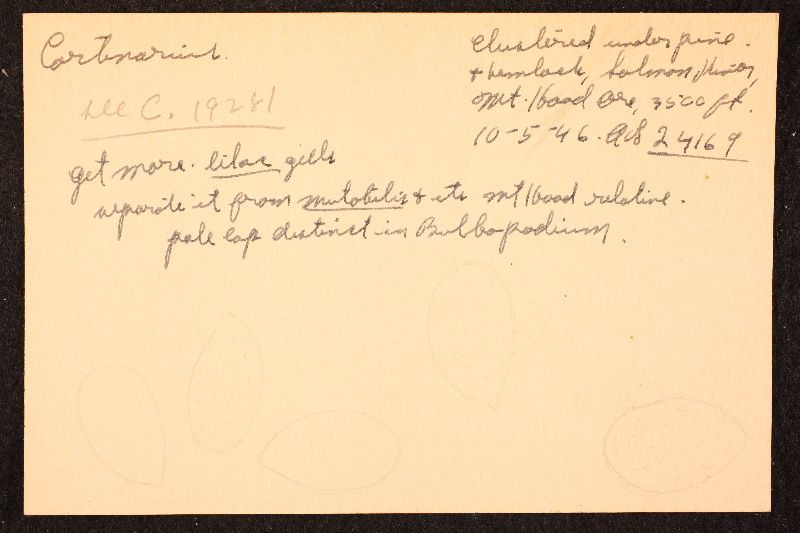 Cortinarius.
See C. 19281
Clustered under pine.
+ hemlock, Salmon River,
Mt. Hood Ore, 3500 ft.
10-5-46. AHS 24169
get more. lilac gills
separate it from mutabilis + its mt Hood relative.
pale cap distinct in Bulbopodium.